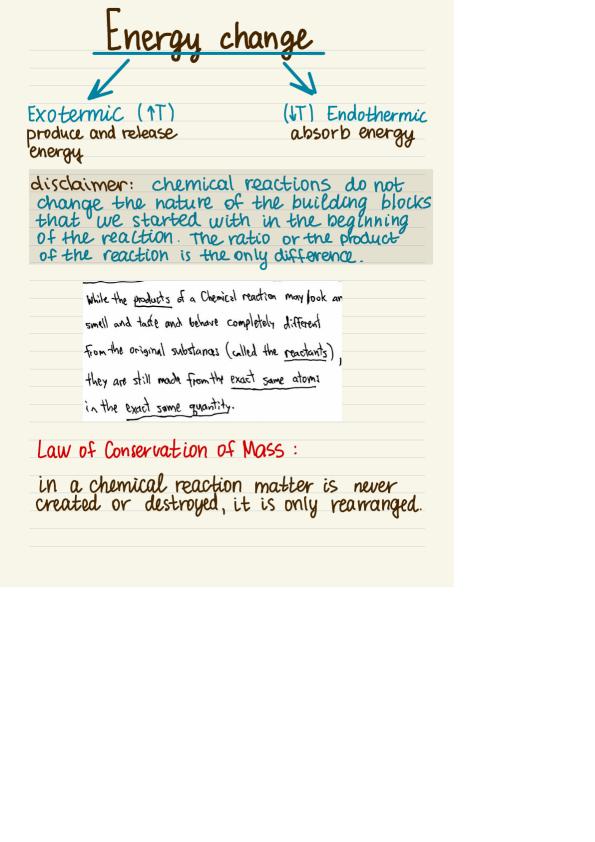 Energy change
Exotermic (↑T)
produce and release
energy
(↓T) Endothermic
absorb energy
disclaimer: chemical reactions do not
change the nature of the building blocks
that we started with in the beginning
of the reaction. The ratio or the product
of the reaction is the only difference.
While the products of a Chemical reaction may look an
smell and taste and behave completely different
from the original substances (called the reactants),
they are still made from the exact same atoms
in the exact same quantity.
Law of Conservation of Mass :
in a chemical reaction matter is never
created or destroyed, it is only rearranged.